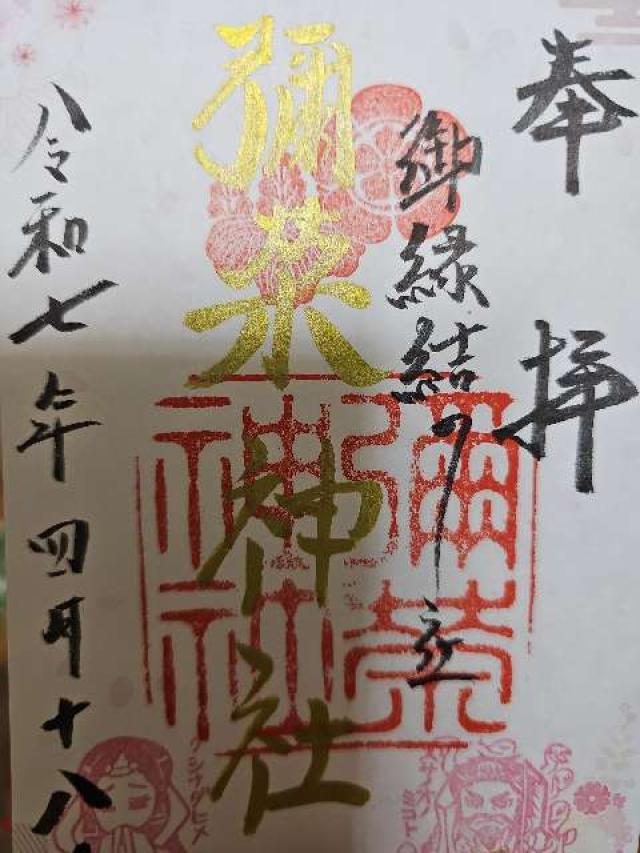 奉拝
御縁結び
彌栄神社
彌榮神社
令和七年四月十八
クシナダヒメ
スサノオノミコト